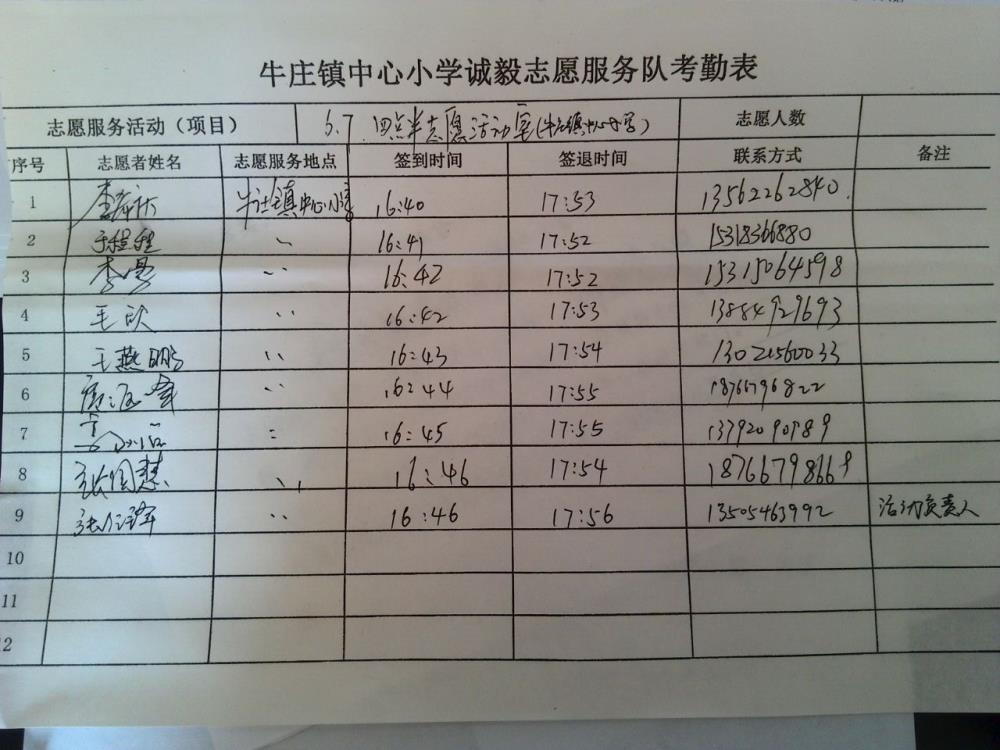 牛庄镇中心小学诚毅志愿服务队考勤表
志愿服务活动（项目） 6.7 四点半志愿活动室（牛庄镇中心小学） 志愿人数
序号 志愿者姓名 志愿服务地点 签到时间 签退时间 联系方式 备注
1 牛庄镇中心小学 16:40 17:53 13562262840
2 于程程 〃 16:41 17:52 15318366880
3 李曼 〃 16:42 17:52 15315064598
4 毛欣 〃 16:42 17:53 13884929693
5 王燕鹏 〃 16:43 17:54 13021560033
6 〃 16:44 17:55 18766796822
7 〃 16:45 17:55 13792090989
8 〃 16:46 17:54 18766798669
9 〃 16:46 17:56 13505463992 活动负责人
10
11
12